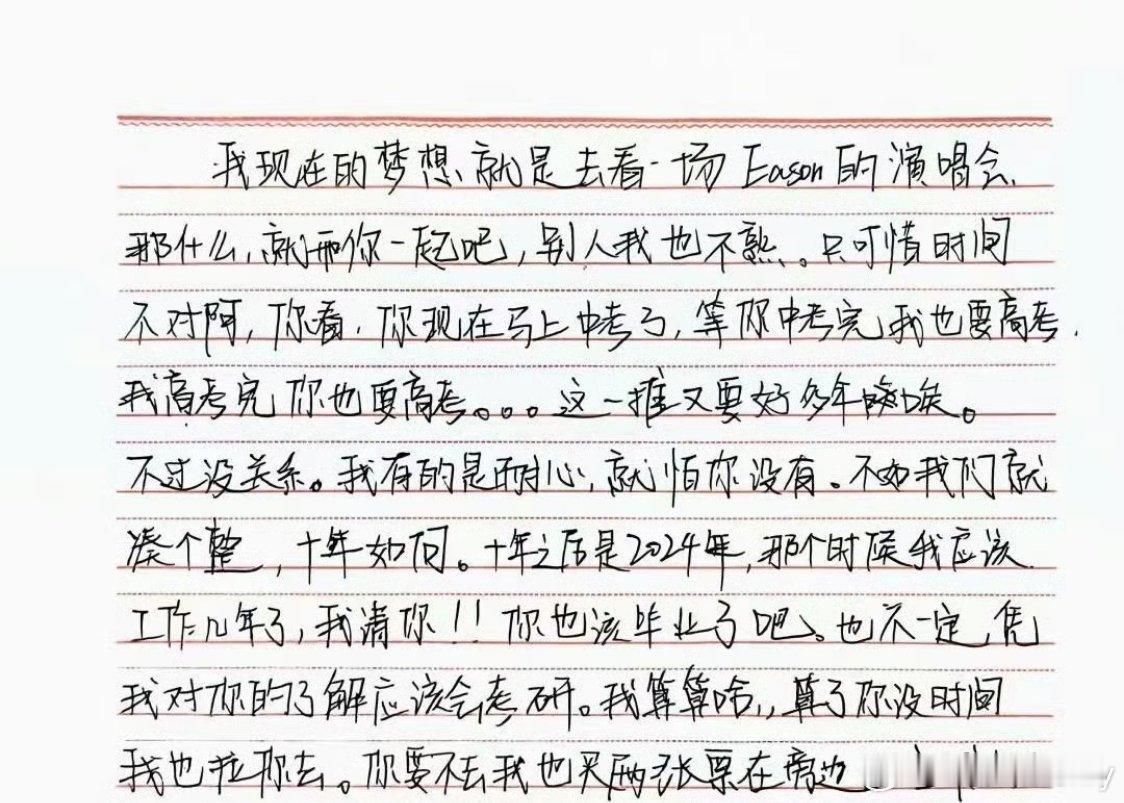 我现在的梦想、就是去看一场 Eason的演唱会、
那什么，就和你一起吧，别人我也不熟、。只可惜时间
不对阿，你看，你现在马上中考了，等你中考完我也要高考，
我高考完你也要高考。。。这一推又要好多年嗨唉。
不过没关系。我有的是耐心，就怕你没有。不如我们就
凑个整，十年如何。十年之后是2024年，那个时候我应该
工作几年了，我请你！！你也该毕业了吧。也不一定，凭
我对你的了解应该会考研。我算算啥，，算了你没时间
我也拉你去。你要不去我也买两张票在旁边